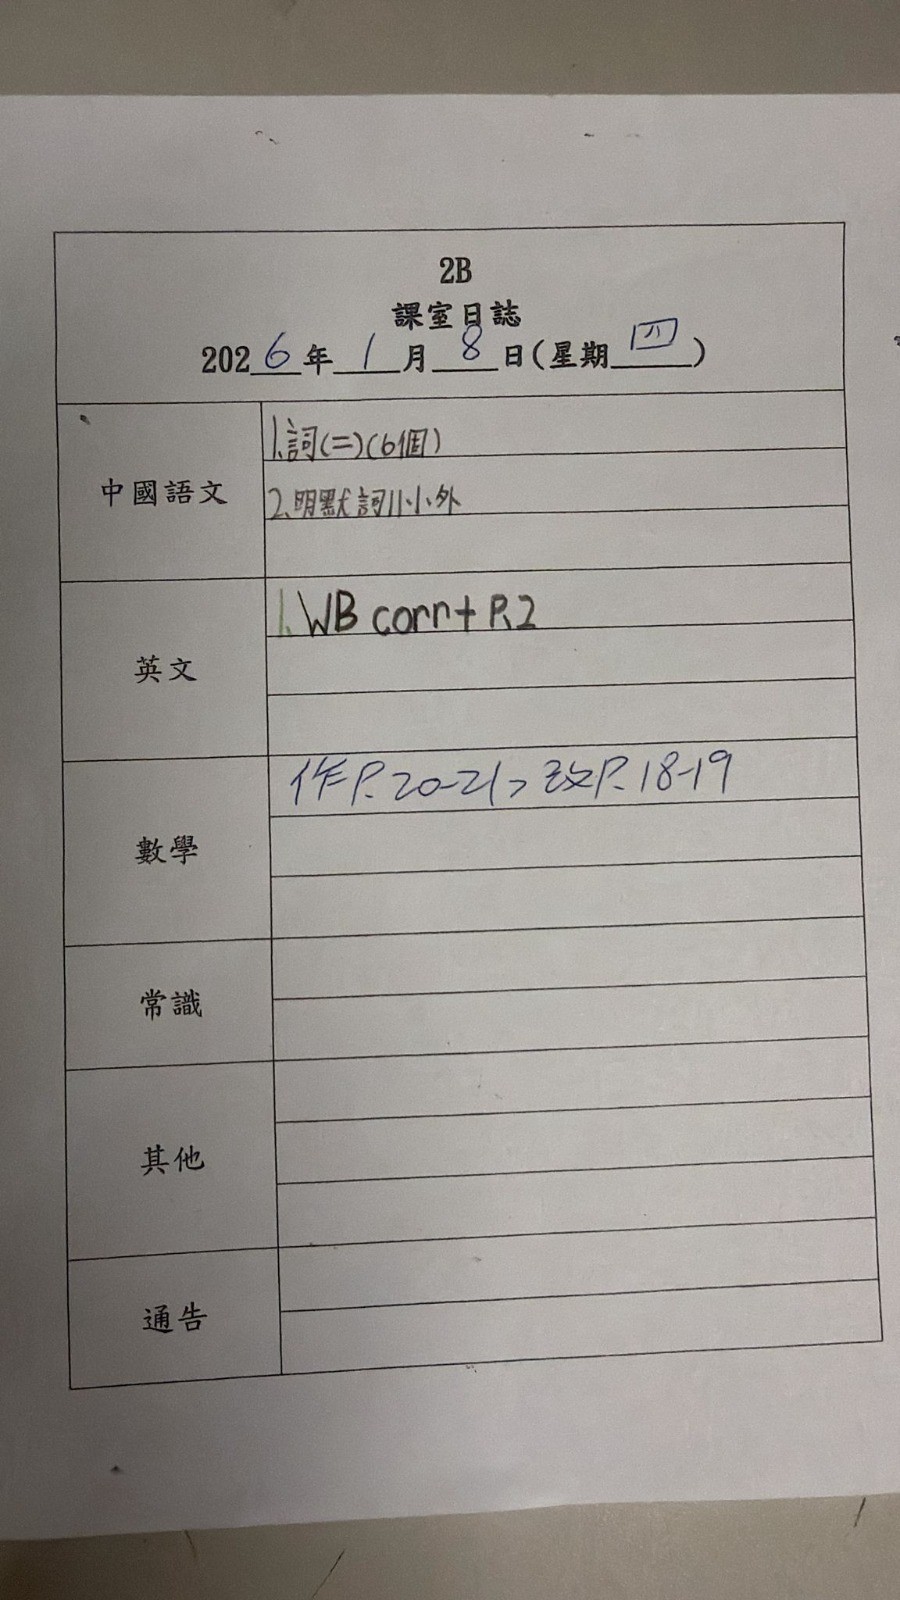 2B
課室日誌
2026年1月8日(星期四)
中國語文
1.詞(二)(6個)
2.明默詞11小外
英文
1.WB corr+ P.2
數學
作P.20-21,改P.18-19
常識
其他
通告